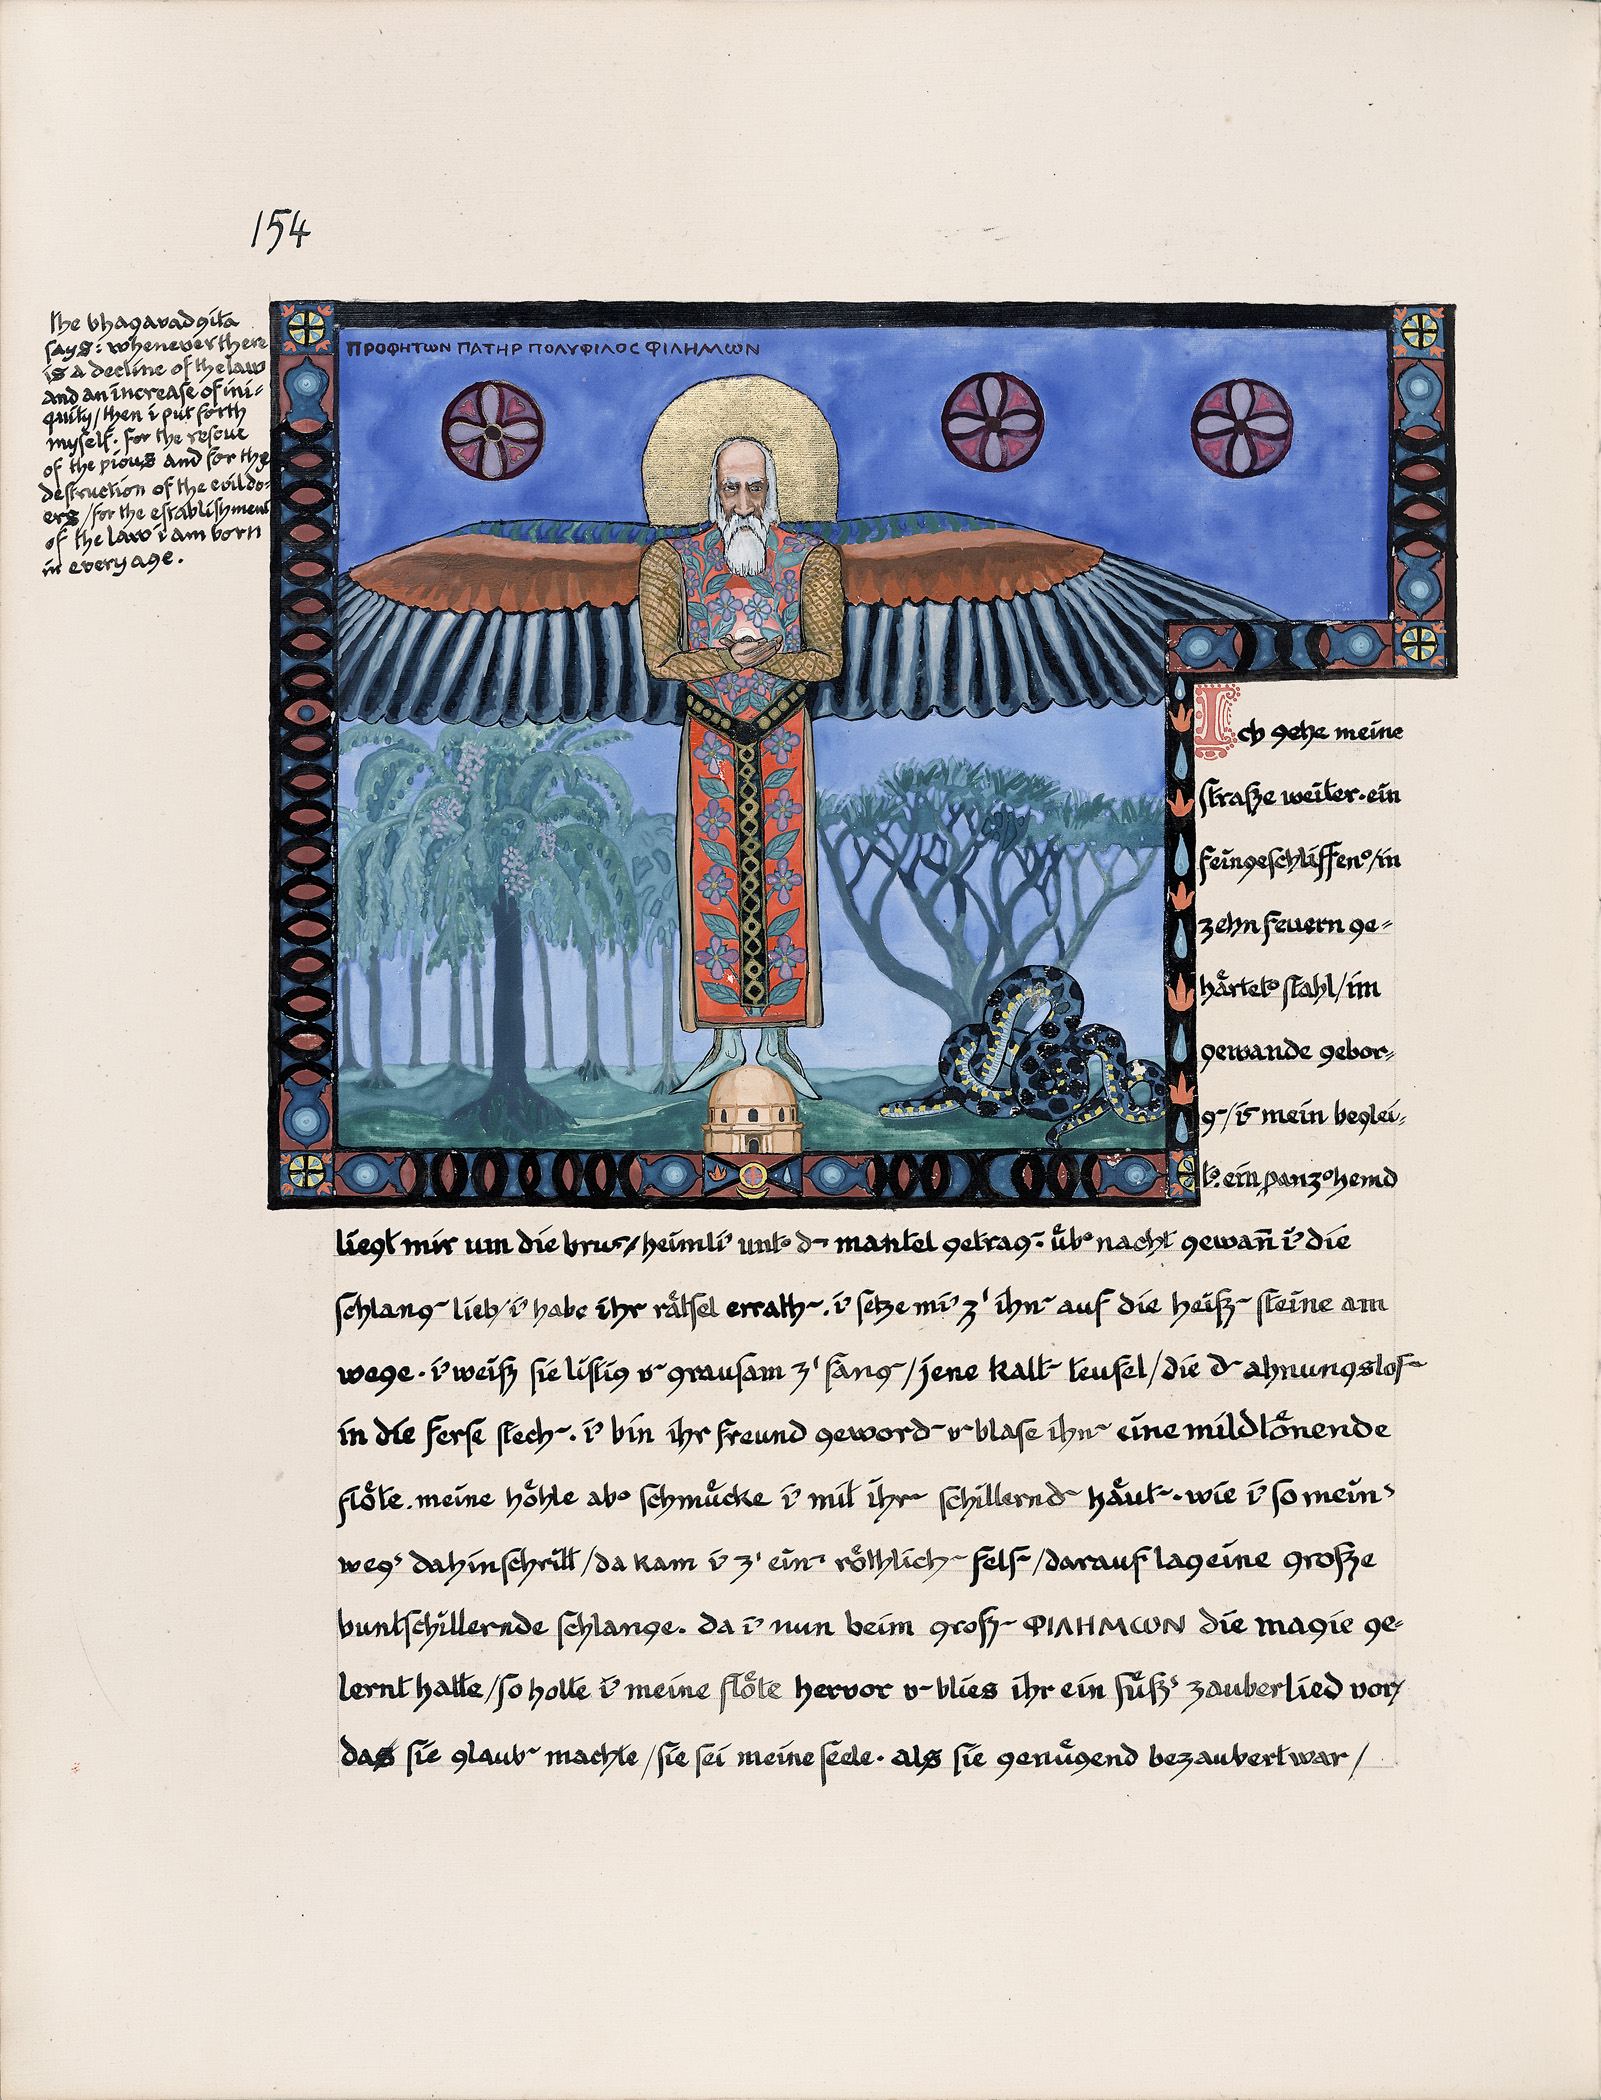 154
the bhagavadgita
says: whenever there
is a decline of the law
and an increase of ini=
quity/then i put forth
myself. for the rescue
of the pious and for the
destruction of the evildo=
ers/for the establishment
of the law i am born
in every age.
ΠΡΟΦΗΤΩΝ ΠΑΤΗΡ ΠΟΛΥΦΙΛΟϹ ΦΙΛΗΜΩΝ
Ich gehe meine
straße weiter. ein
feingeschliffen°/in
zehn feuern ge=
härtet° stahl/im
gewande gebor=
g~/i~ mein beglei=
t°. ein panz°hemd
liegt mir um die brus~/heimli' unt° d~ mantel getrag~. üb° nacht gewan̄ i' die
schlang~ lieb/i' habe ihr rätsel errath~. i' setze mi' z' ihn~ auf die heiß~ steine am
wege. i' weiß sie listig v~ grausam z' fang~/jene kalt~ teufel/die d~ ahnungslos~
in die ferse stech~. i' bin ihr freund geword~ v~ blase ihn~ eine mildtönende
flöte. meine höhle ab° schmücke i' mit ihr~ schillernd~ häut~. wie i' so mein'
weg' dahinschritt/da kam i' z' ein~ röthlich~ fels~/darauf lag eine große
buntschillernde schlange. da i' nun beim groß~ ΦΙΛΗΜΩΝ die magie ge=
lernt hatte/so holte i' meine flöte hervor v~ blies ihr ein süß' zauberlied vor/
das sie glaub~ machte/sie sei meine seele. als sie genügend bezaubert war/